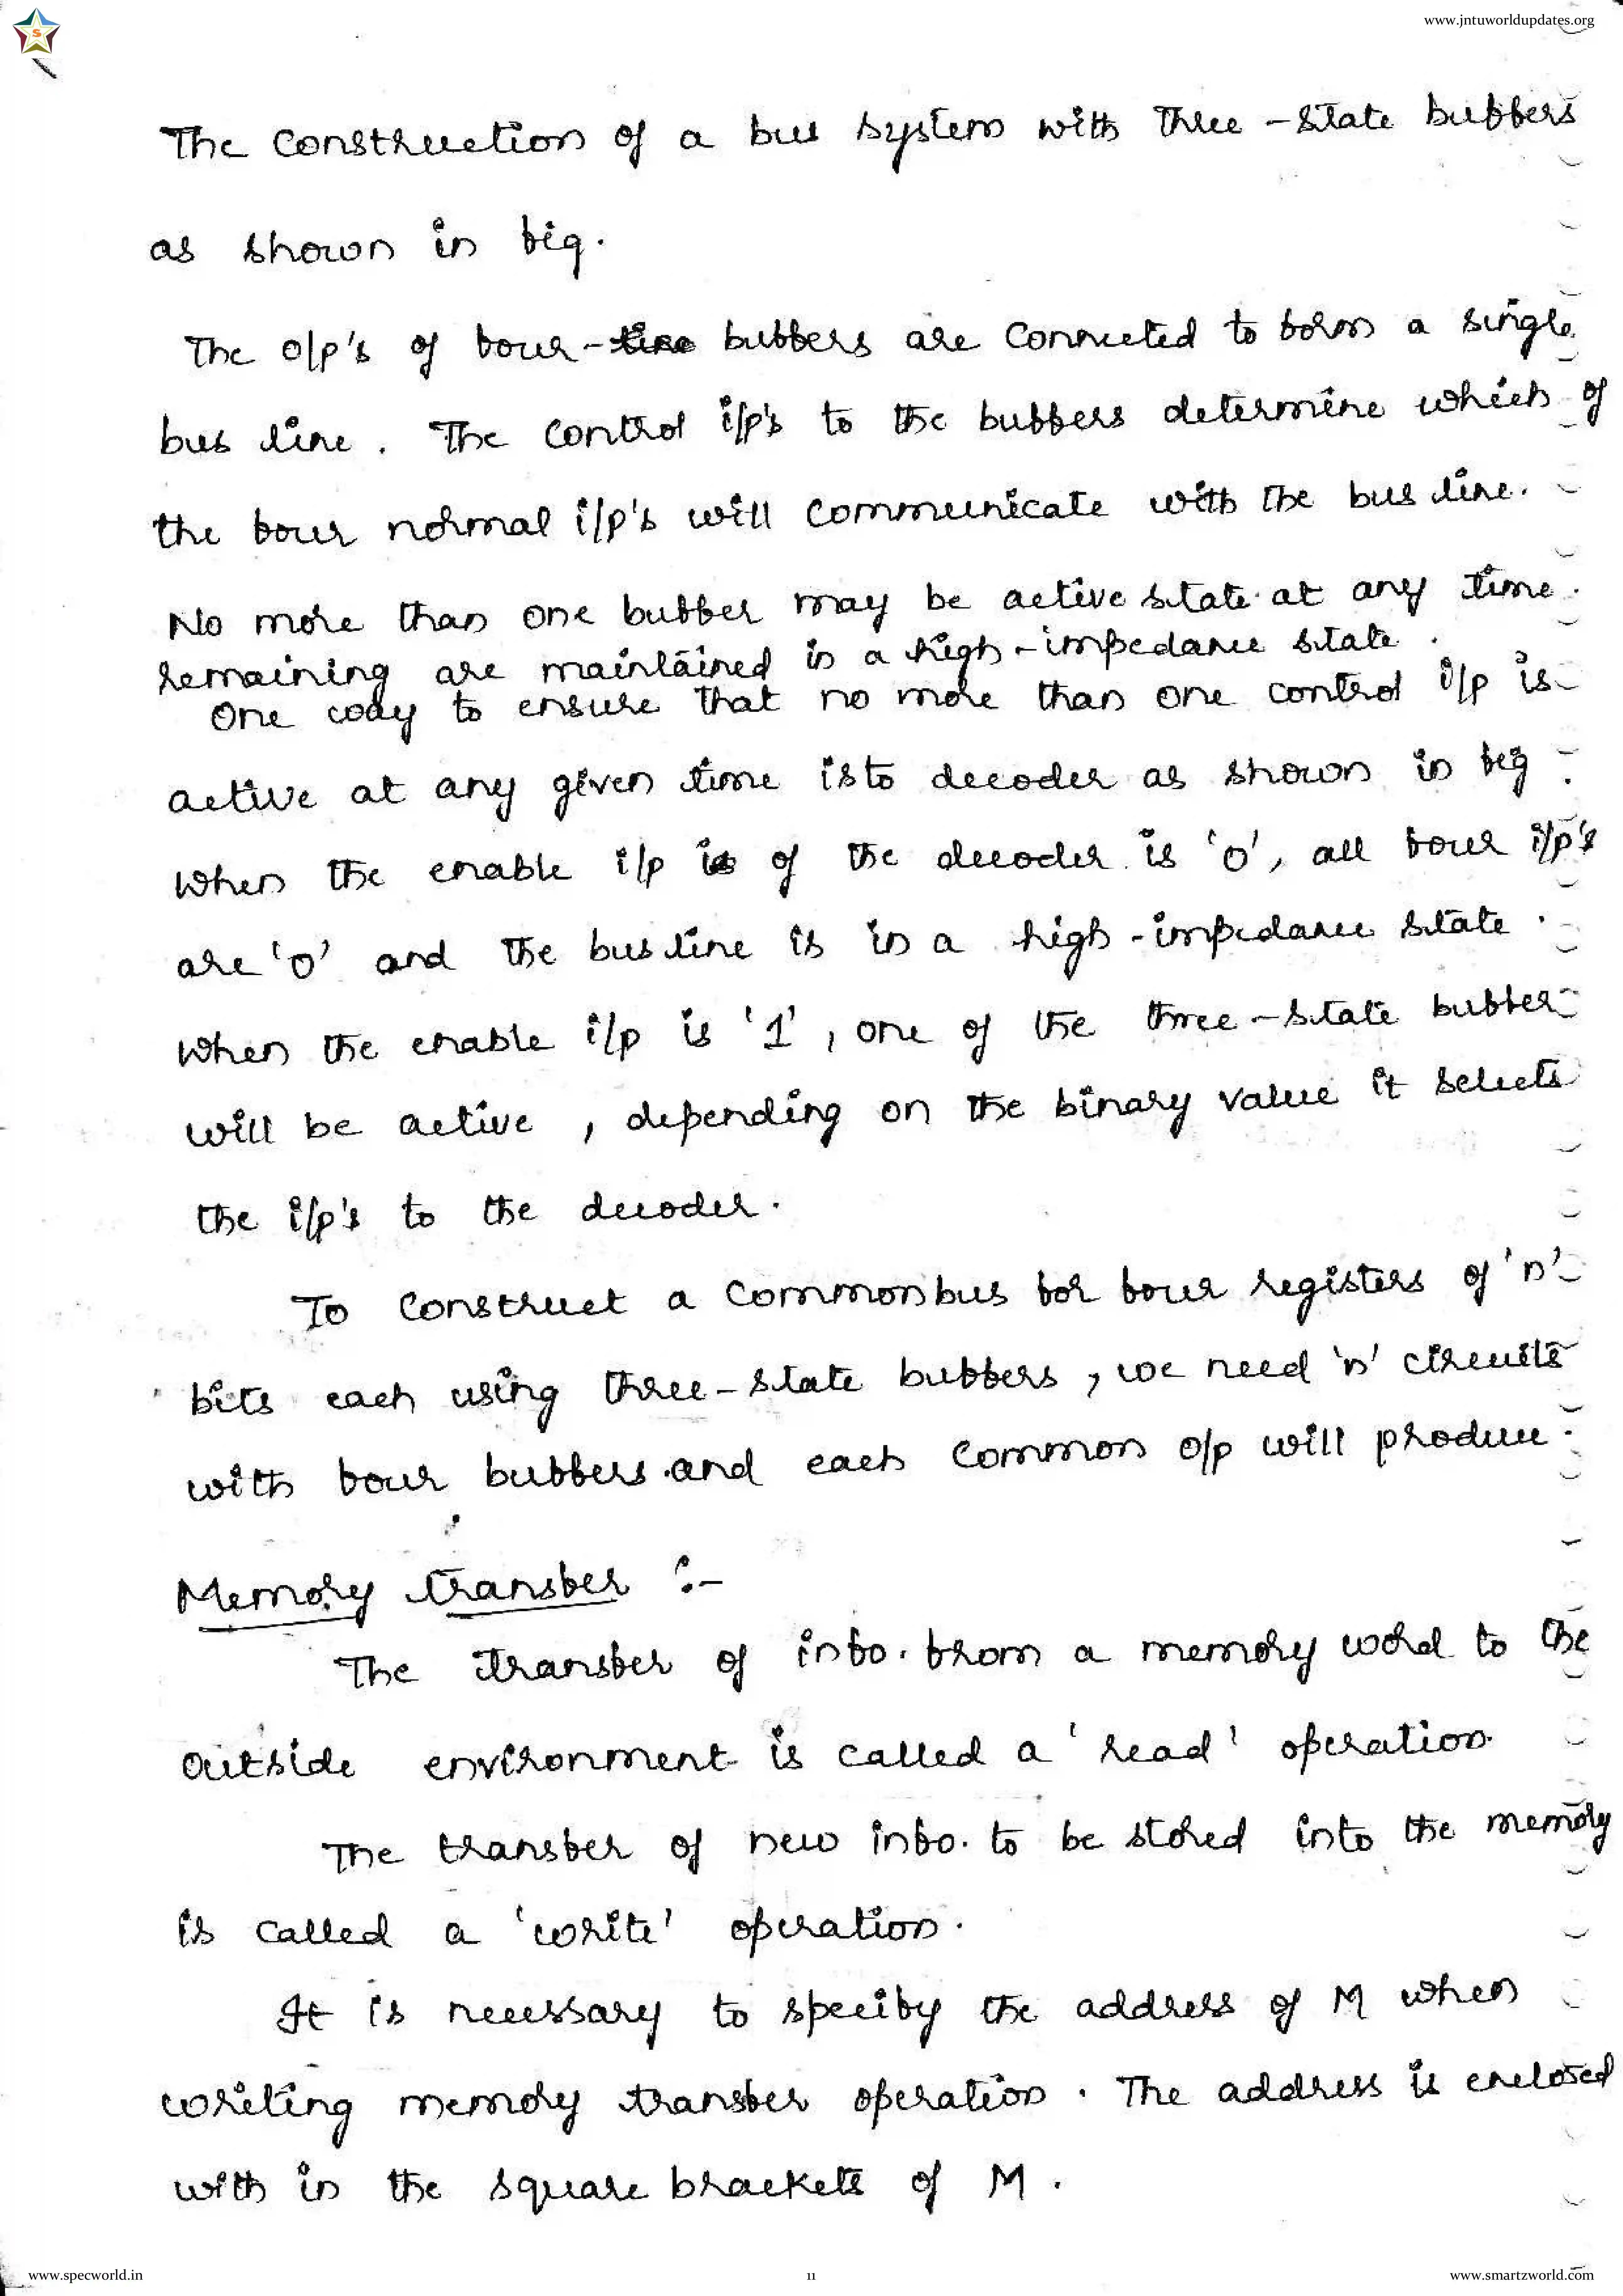 S
www.jntuworldupdates.org
The construction of a bus system with three-state buffers
as shown in fig.
The o/p's of four-line buffers are connected to form a single
bus line. The control i/p's to the buffers determine which of
the four normal i/p's will communicate with the bus line.
No more than one buffer may be active state at any time.
remaining are maintained in a high-impedance state.
One way to ensure that no more than one control i/p is
active at any given time is to decoder as shown in fig:
When the enable i/p is of the decoder is '0', all four i/p's
are '0' and the bus line is in a high-impedance state.
When the enable i/p is '1', one of the three-state buffer
will be active, depending on the binary value it selects
the i/p's to the decoder.
To construct a common bus for four registers of 'n'
bits each using three-state buffers, we need 'n' circuits
with four buffers and each common o/p will produce.
Memory transfer :-
The transfer of info. from a memory word to the
outside environment is called a 'read' operation.
The transfer of new info. to be stored into the memory
is called a 'write' operation.
It is necessary to specify the address of M when
writing memory transfer operation. The address is enclosed
with in the square brackets of M.
www.specworld.in
11
www.smartzworld.com